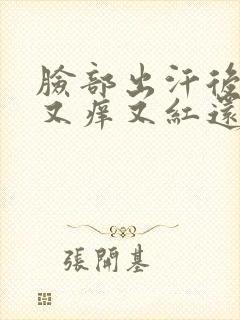 臉部出汗後
又痒又紅還
張開基